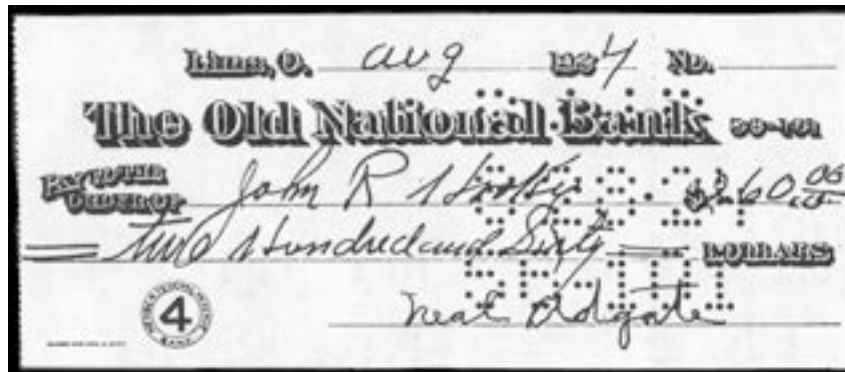 Lima, O. Aug 1924 No.
The Old National Bank 56-101
PAY TO THE ORDER OF John R $260.00
Two Hundred and Sixty DOLLARS
4
Neal